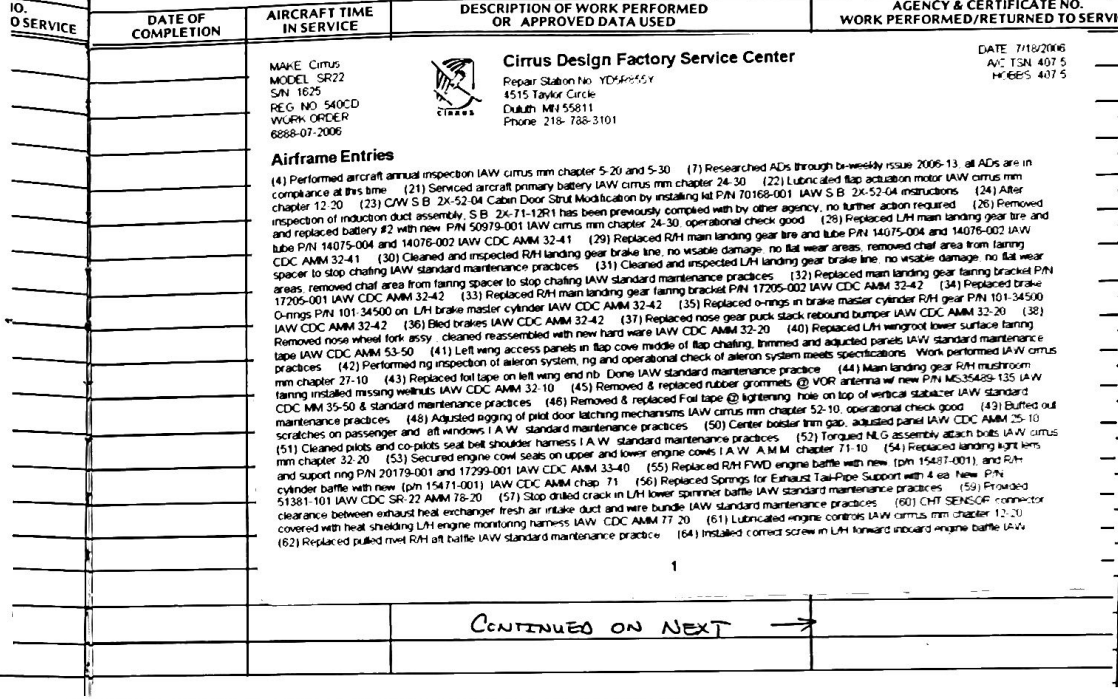 IO.
O SERVICE
DATE OF
COMPLETION
AIRCRAFT TIME
IN SERVICE
DESCRIPTION OF WORK PERFORMED
OR APPROVED DATA USED
AGENCY & CERTIFICATE NO.
WORK PERFORMED/RETURNED TO SERVI
MAKE Cirrus
MODEL SR22
S/N 1625
REG NO 540CD
WORK ORDER
6888-07-2006
CIRRUS
Cirrus Design Factory Service Center
Repair Station No
4515 Taylor Circle
Duluth MN 55811
Phone 218- 788-3101
DATE 7/18/2006
A/C TSN 407 5
HOBBS 407 5
Airframe Entries
(4) Performed aircraft annual inspection IAW cirrus mm chapter 5-20 and 5-30 (7) Researched ADs through bi-weekly issue 2006-13, all ADs are in
compliance at this time (21) Serviced aircraft primary battery IAW cirrus mm chapter 24-30 (22) Lubricated flap actuation motor IAW cirrus mm
chapter 12-20 (23) C/W S B 2X-52-04 Cabin Door Strut Modification by installing kit P/N 70168-001 IAW S B 2X-52-04 instructions (24) After
inspection of induction duct assembly, S B 2X-71-12R1 has been previously complied with by other agency, no further action required (26) Removed
and replaced battery #2 with new P/N 50979-001 IAW cirrus mm chapter 24-30, operational check good (28) Replaced L/H main landing gear tire and
tube P/N 14075-004 and 14076-002 IAW CDC AMM 32-41 (29) Replaced R/H main landing gear tire and tube P/N 14075-004 and 14076-002 IAW
CDC AMM 32-41 (30) Cleaned and inspected R/H landing gear brake line, no visable damage, no flat wear areas, removed chaf area from fairing
spacer to stop chafing IAW standard maintenance practices (31) Cleaned and inspected L/H landing gear brake line, no visable damage, no flat wear
areas, removed chaf area from fairing spacer to stop chafing IAW standard maintenance practices (32) Replaced main landing gear fairing bracket P/N
17205-001 IAW CDC AMM 32-42 (33) Replaced R/H main landing gear fairing bracket P/N 17205-002 IAW CDC AMM 32-42 (34) Replaced brake
O-rings P/N 101-34500 on L/H brake master cylinder IAW CDC AMM 32-42 (35) Replaced o-rings in brake master cylinder R/H gear P/N 101-34500
IAW CDC AMM 32-42 (36) Bled brakes IAW CDC AMM 32-42 (37) Replaced nose gear puck stack rebound bumper IAW CDC AMM 32-20 (38)
Removed nose wheel fork assy , cleaned reassembled with new hard ware IAW CDC AMM 32-20 (40) Replaced L/H wingroot lower surface fairing
tape IAW CDC AMM 53-50 (41) Left wing access panels in flap cove middle of flap chafing, trimmed and adjucted panels IAW standard maintenance
practices (42) Performed rig inspection of aileron system, rig and operational check of aileron system meets specifications Work performed IAW cirrus
mm chapter 27-10 (43) Replaced foil tape on left wing end rib Done IAW standard maintenance practice (44) Main landing gear R/H mushroom
fairing installed missing wellnuts IAW CDC AMM 32-10 (45) Removed & replaced rubber grommets @ VOR antenna w/ new P/N MS35489-135 IAW
CDC MM 35-50 & standard maintenance practices (46) Removed & replaced Foil tape @ lightening hole on top of vertical stabilizer IAW standard
maintenance practices (48) Adjusted rigging of pilot door latching mechanisms IAW cirrus mm chapter 52-10, operational check good (49) Buffed out
scratches on passenger and aft windows I A W standard maintenance practices (50) Center bolster trim gap, adjusted panel IAW CDC AMM 25-10
(51) Cleaned pilots and co-pilots seat belt shoulder harness I A W standard maintenance practices (52) Torqued NLG assembly attach bolts IAW cirrus
mm chapter 32-20 (53) Secured engine cowl seals on upper and lower engine cowls I A W A M M chapter 71-10 (54) Replaced landing light lens
and suport ring P/N 20179-001 and 17299-001 IAW CDC AMM 33-40 (55) Replaced R/H FWD engine baffle with new (p/n 15487-001), and R/H
cylinder baffle with new (p/n 15471-001) IAW CDC AMM chap 71 (56) Replaced Springs for Exhaust Tail-Pipe Support with 4 ea New P/N
51381-101 IAW CDC SR-22 AMM 78-20 (57) Stop drilled crack in L/H lower spinner baffle IAW standard maintenance practices (59) Provided
clearance between exhaust heat exchanger fresh air intake duct and wire bundle IAW standard maintenance practices (60) CHT SENSOR connector
covered with heat shielding L/H engine monitoring harness IAW CDC AMM 77 20 (61) Lubricated engine controls IAW cirrus mm chapter 12-20
(62) Replaced pulled rivet R/H aft baffle IAW standard maintenance practice (64) Installed correct screw in L/H forward inboard engine baffle IAW
1
CONTINUED ON NEXT →